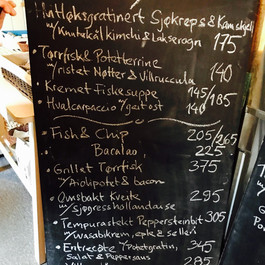 Hvitløksgratinert Sjøkreps & Kamskjell
m/Kinakål kimchi & Lakserogn 175
• Tørrfisk & Potetterrine
m/ristet Nøtter & Villruccula 140
• Kremet Fiskesuppe 145/185
• Hvalcarpaccio m/geitost 140
• Fish & Chip 205/265
• Bacalao, 225
• Grillet Tørrfisk 375
m/Aiolipotet & bacon
• Ovnsbakt Kveite 295
m/Sjøgresshollandaise
• Tempurastekt Peppersteinbit 305
m/Wasabikrem, eple & selleri
• Entrecôte m/Potetgratin, 345
Salat & Peppersaus
285